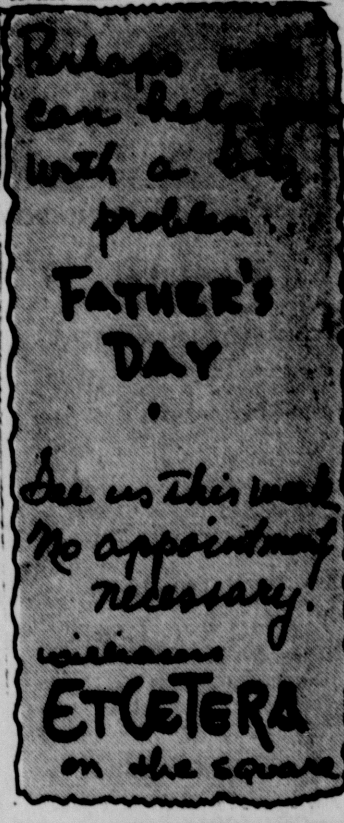 Perhaps we
can help
with a big
problem.
FATHER'S
DAY
See us this week
No appointment
necessary.
williams
ETCETERA
on the square